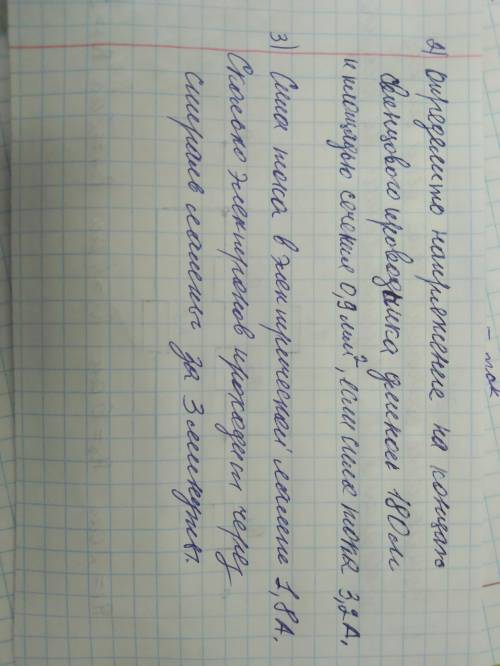 - ток
2) Определить напряжение на концах
свинцового проводника длиной 180 м
и площадью сечения 0,9 мм², если сила тока 3,2 А.
3) Сила тока в электрической лампе 1,8 А.
Сколько электронов проходит через
спираль лампы за 3 минуты.